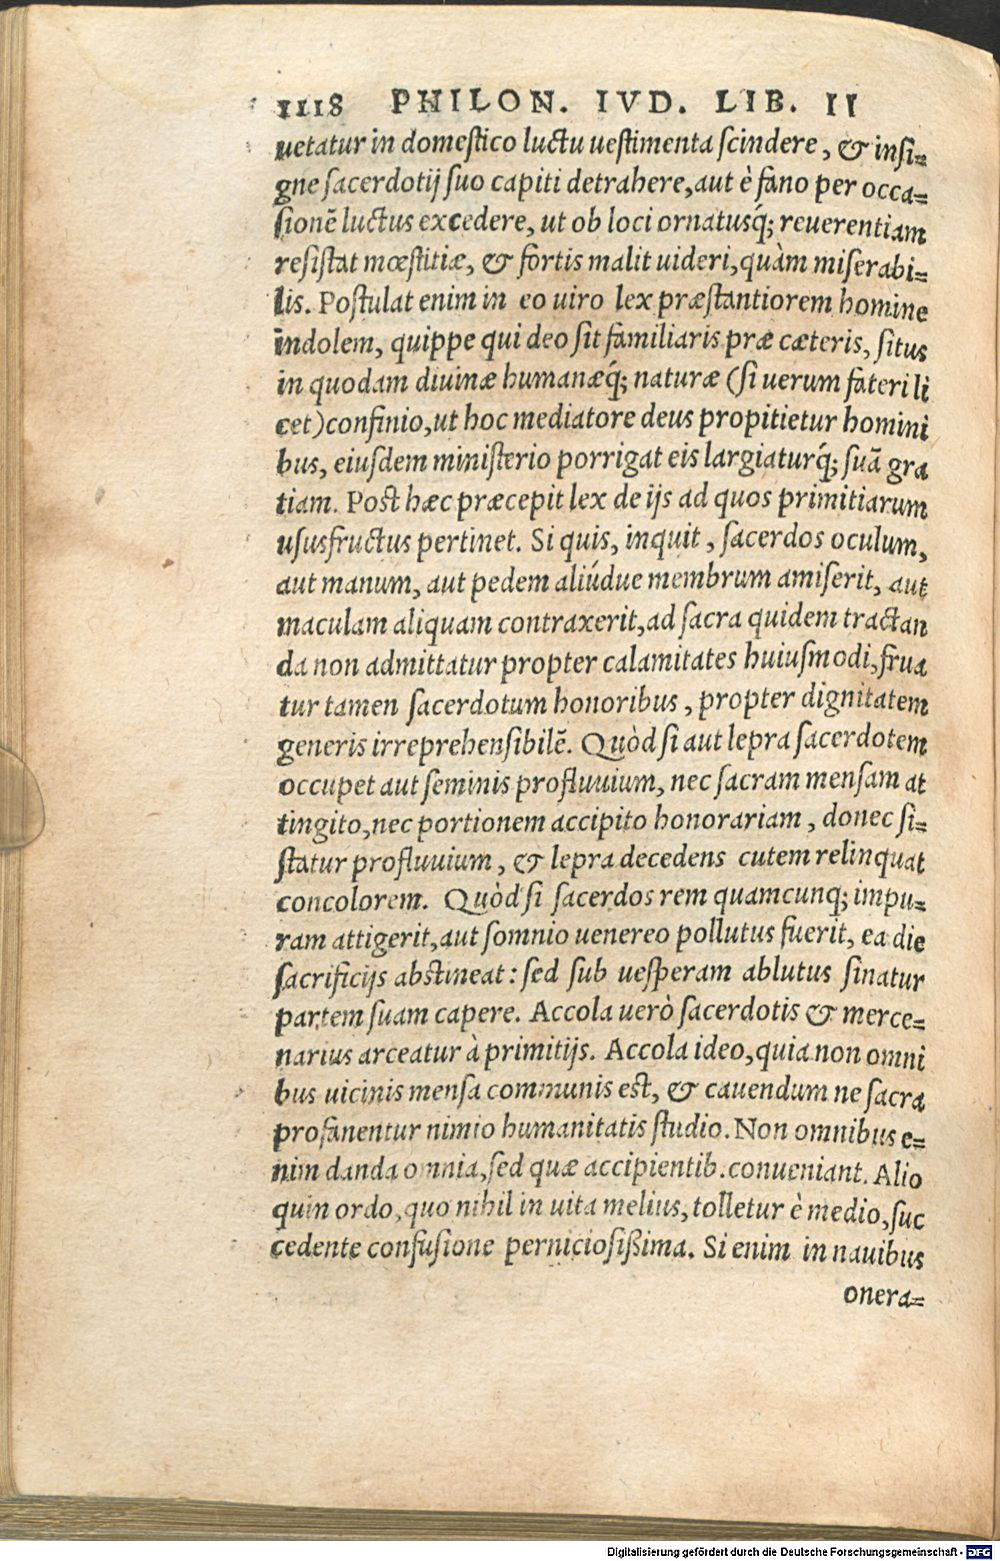 1118 PHILON. IVD. LIB. II
uetatur in domestico luctu uestimenta scindere, & insi-
gne sacerdotij suo capiti detrahere, aut è fano per occa-
sionē luctus excedere, ut ob loci ornatusq́; reuerentiam
resistat mœstitiæ, & fortis malit uideri, quàm miserabi-
lis. Postulat enim in eo uiro lex præstantiorem homine
indolem, quippe qui deo sit familiaris præ cæteris, situs
in quodam diuinæ humanæq́; naturæ (si uerum fateri li
cet) confinio, ut hoc mediatore deus propitietur homini
bus, eiusdem ministerio porrigat eis largiaturq́; suā gra
tiam. Post hæc præcepit lex de ijs ad quos primitiarum
ususfructus pertinet. Si quis, inquit, sacerdos oculum,
aut manum, aut pedem aliúdue membrum amiserit, aut
maculam aliquam contraxerit, ad sacra quidem tractan
da non admittatur propter calamitates huiusmodi, frua
tur tamen sacerdotum honoribus, propter dignitatem
generis irreprehensibilē. Quòd si aut lepra sacerdotem
occupet aut seminis profluuium, nec sacram mensam at
tingito, nec portionem accipito honorariam, donec si-
statur profluuium, & lepra decedens cutem relinquat
concolorem. Quòd si sacerdos rem quamcunq; impu-
ram attigerit, aut somnio uenereo pollutus fuerit, ea die
sacrificijs abstineat: sed sub uesperam ablutus sinatur
partem suam capere. Accola uerò sacerdotis & merce-
narius arceatur à primitijs. Accola ideo, quia non omni
bus uicinis mensa communis est, & cauendum ne sacra
profanentur nimio humanitatis studio. Non omnibus e-
nim danda omnia, sed quæ accipientib. conueniant. Alio
quin ordo, quo nihil in uita melius, tolletur è medio, suc
cedente confusione perniciosißima. Si enim in nauibus
onera-
Digitalisierung gefördert durch die Deutsche Forschungsgemeinschaft - DFG